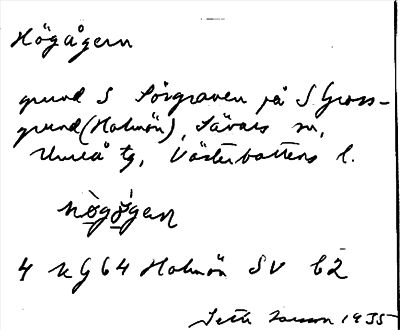 Högågern
grund S Sörgraven på S. Gross-
grund (Holmön), Sävars sn,
Umeå tg, Västerbottens l.
högøgen
4 k G 64 Holmön SV b2
Seth 1935